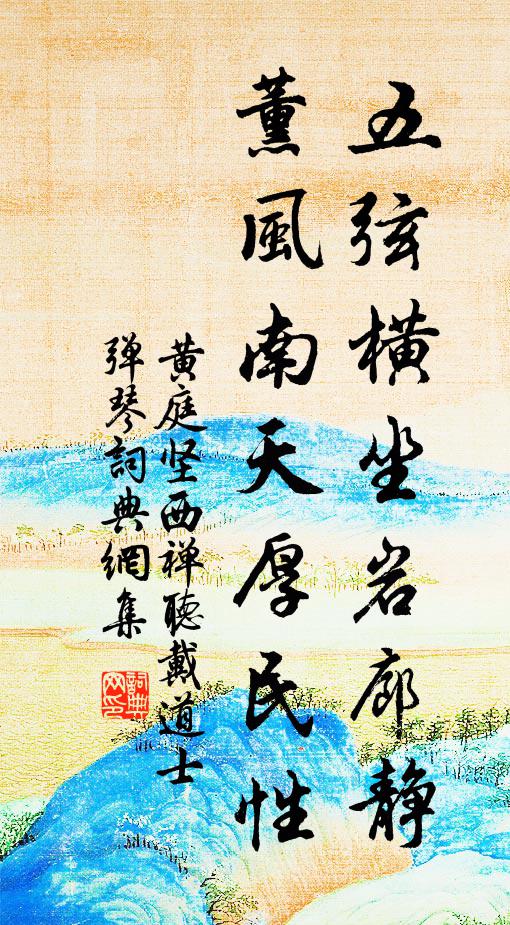 五弦橫坐岩廊静
薰風南天厚民性
黄庭坚西禅聽戴道士
弹琴詞典網集
詞典网印